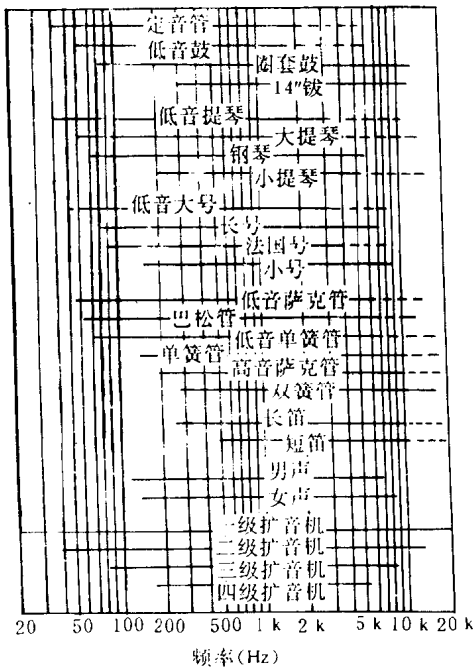 定音管
低音鼓
圈套鼓
14″钹
低音提琴
大提琴
钢琴
小提琴
低音大号
长号
法国号
小号
低音萨克管
巴松管
低音单簧管
单簧管
高音萨克管
双簧管
长笛
短笛
男声
女声
一级扩音机
二级扩音机
三级扩音机
四级扩音机
20 50 100 200 500 1 k 2 k 5 k 10 k 20 k
频率(Hz)